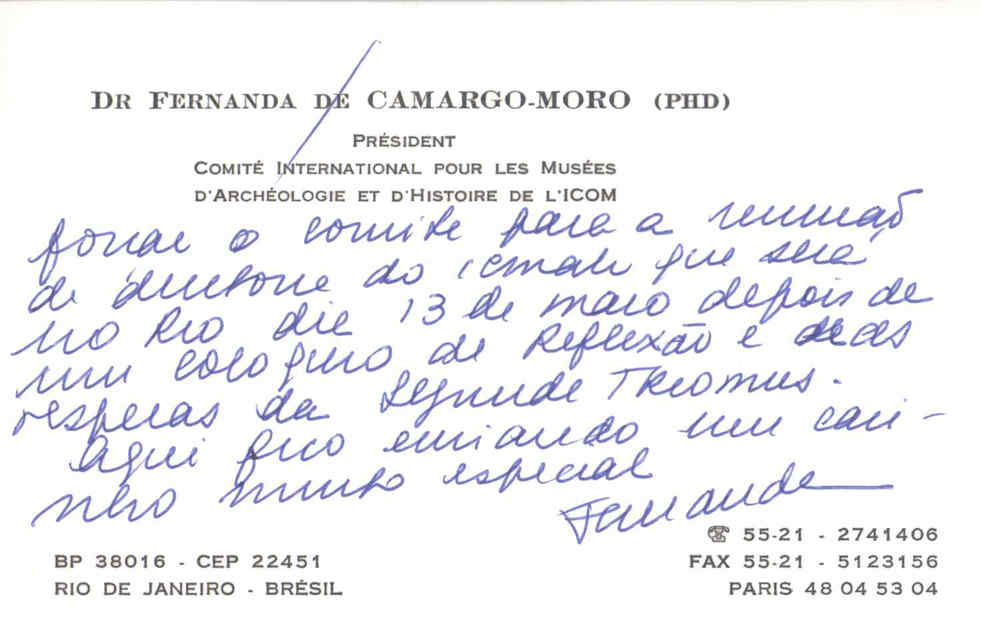 DR FERNANDA DE CAMARGO-MORO (PHD)
PRÉSIDENT
COMITÉ INTERNATIONAL POUR LES MUSÉES
D'ARCHÉOLOGIE ET D'HISTOIRE DE L'ICOM
o comite para a reunião
de diretoria do icmah que será
no Rio dia 13 de maio depois de
um coloquio de Reflexão e
vesperas da Segunda Theomus.
Aqui fico enviando um cari-
nho muito especial
Fernanda
☎ 55-21 - 2741406
BP 38016 - CEP 22451
FAX 55-21 - 5123156
RIO DE JANEIRO - BRÉSIL
PARIS 48 04 53 04